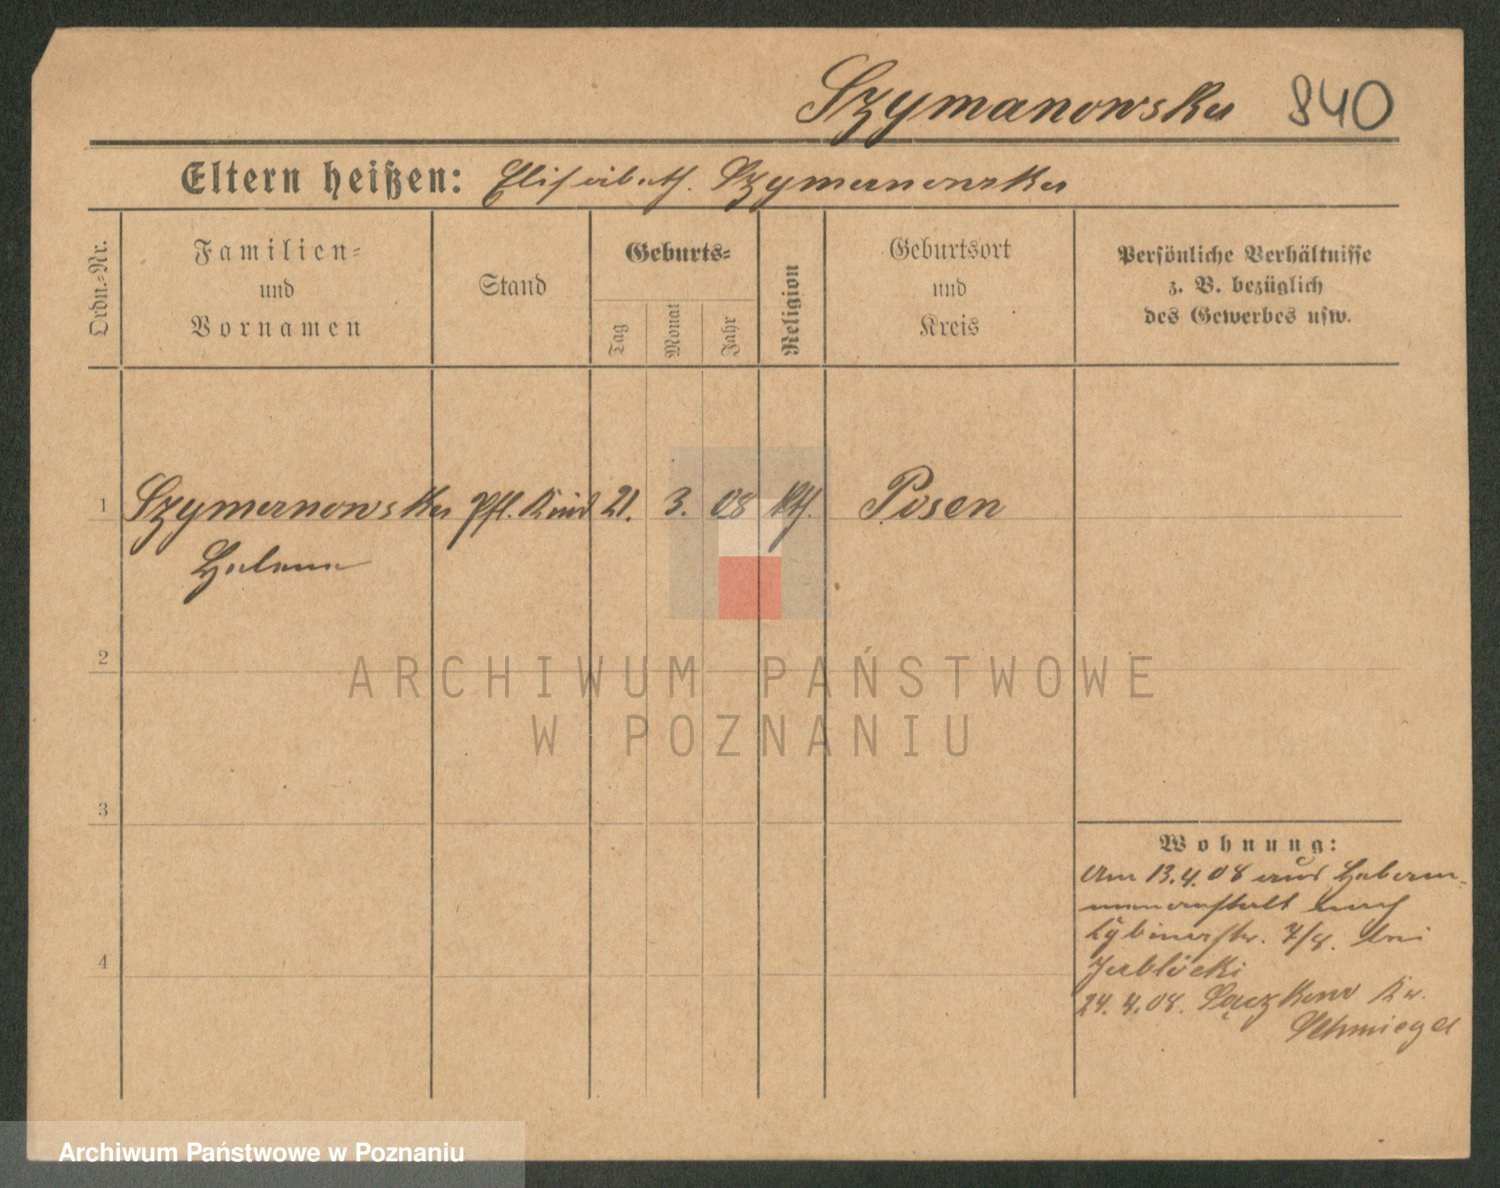 Szymanowska 840
Eltern heißen: Elisabeth. Szymanowska
Ordn.-Nr.
Familien-
und
Vornamen
Stand
Geburts-
Tag
Monat
Jahr
Religion
Geburtsort
und
Kreis
Persönliche Verhältnisse
z. B. bezüglich
des Gewerbes usw.
1 Szymanowska Pfl. Kind 21. 3. 08 kth. Posen
Helene
2
ARCHIWUM PAŃSTWOWE
W POZNANIU
3
Wohnung:
Am 13.4.08 aus Hebam-
menanstalt nach
7/8. bei
Jablocki
4
24.4.08. Kr.
Schmiegel
Archiwum Państwowe w Poznaniu